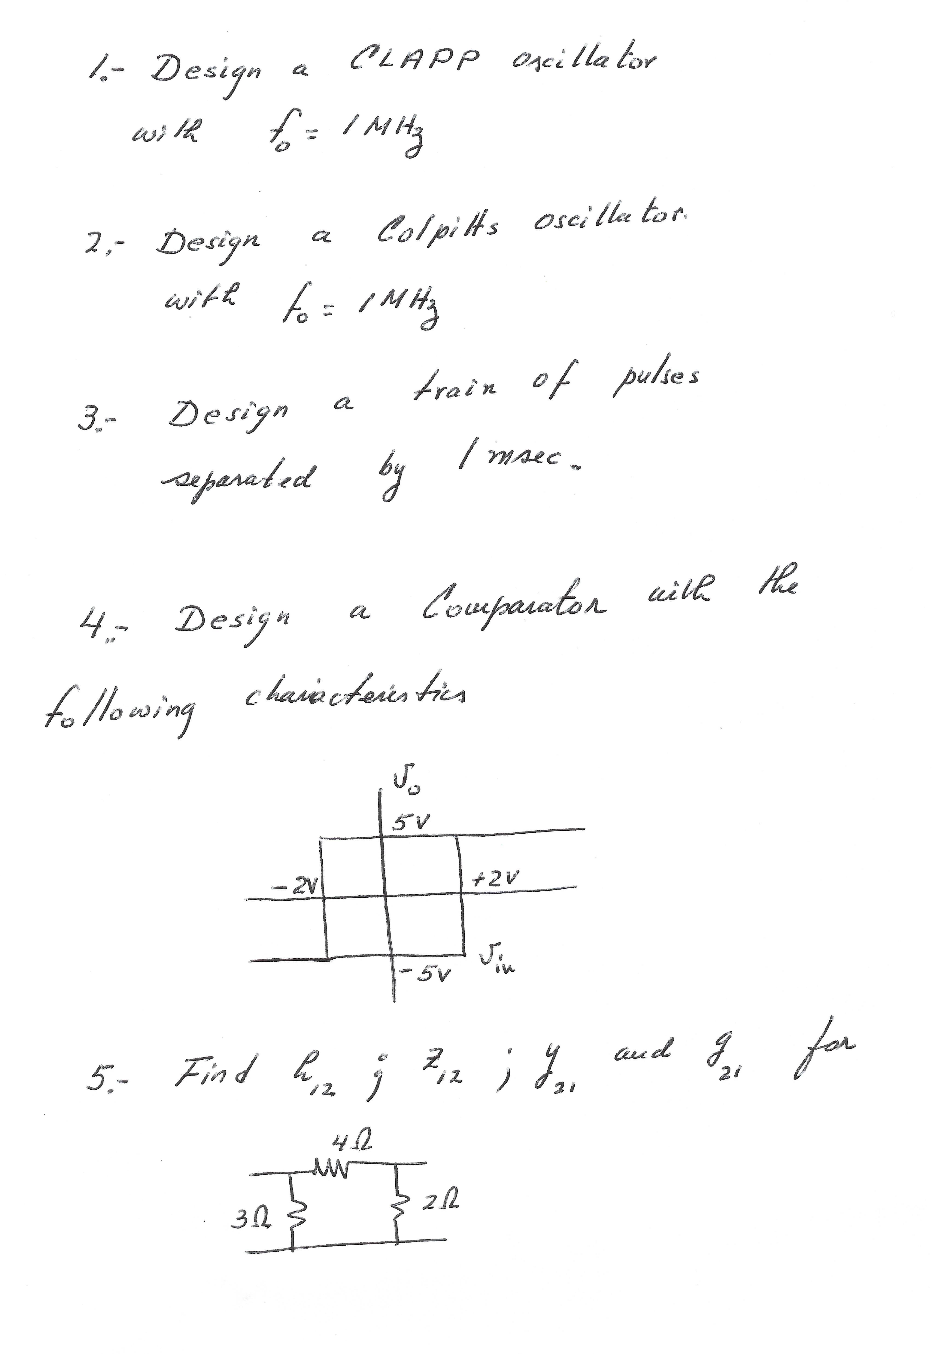 1.- Design a CLAPP oscillator
with f₀ = 1 MHz
2.- Design a Colpitts oscillator.
with f₀ = 1 MHz
3.- Design a train of pulses
separated by 1 msec.
4.- Design a Comparator with the
following characteristics
υ₀
5V
-2V +2V
-5V υin
5.- Find h₁₂ ; z₁₂ ; y₂₁ and g₂₁ for
4Ω
3Ω 2Ω